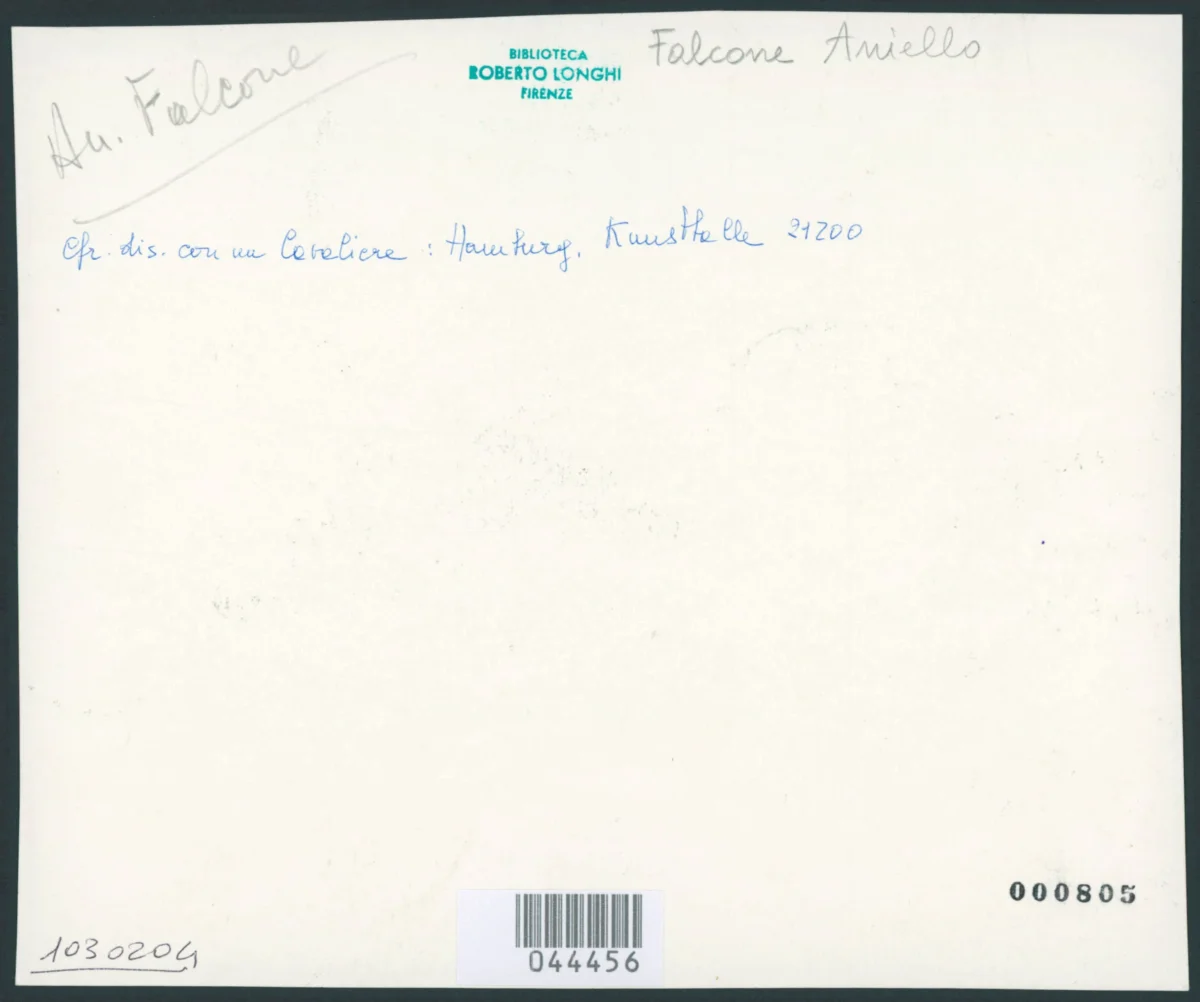 An. Falcone
BIBLIOTECA
ROBERTO LONGHI
FIRENZE
Falcone Aniello
Cfr. dis. con un Cavaliere : Hamburg, Kunsthalle 21200
000805
1030204
044456